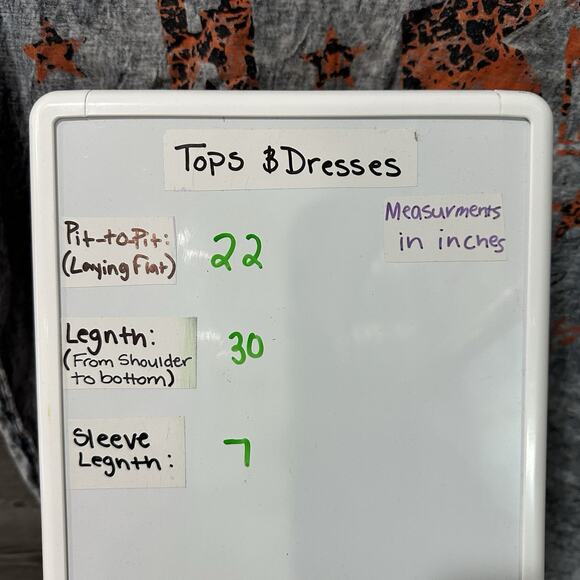 Tops & Dresses
Measurments
in inches
Pit-to-Pit: 22
(Laying Flat)
Legnth: 30
(From Shoulder
to bottom)
Sleeve 7
Legnth: